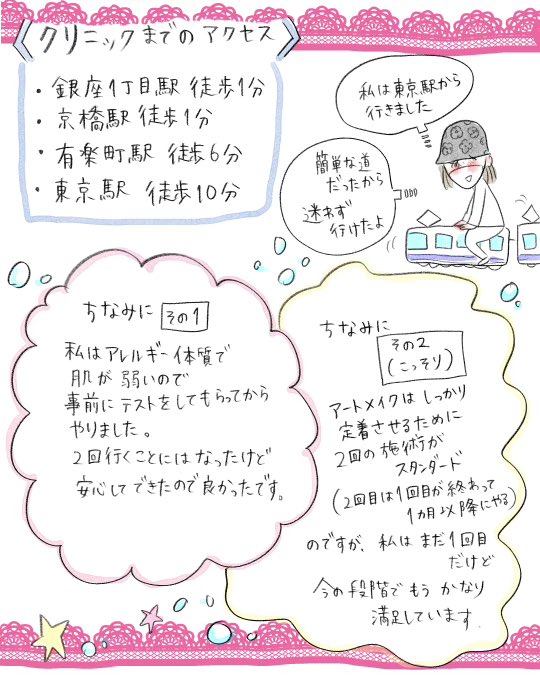 クリニックまでのアクセス
・銀座1丁目駅 徒歩1分
・京橋駅 徒歩1分
・有楽町駅 徒歩6分
・東京駅 徒歩10分
私は東京駅から
行きました
簡単な道
だったから
迷わず
行けたよ
ちなみに その1
私はアレルギー体質で
肌が弱いので
事前にテストをしてもらってから
やりました。
2回行くことにはなったけど
安心してできたので良かったです。
ちなみに
その2
(こっそり)
アートメイクはしっかり
定着させるために
2回の施術が
スタンダード
(2回目は1回目が終わって
1カ月以降にやる)
のですが、私はまだ1回目
だけど
今の段階でもうかなり
満足しています.